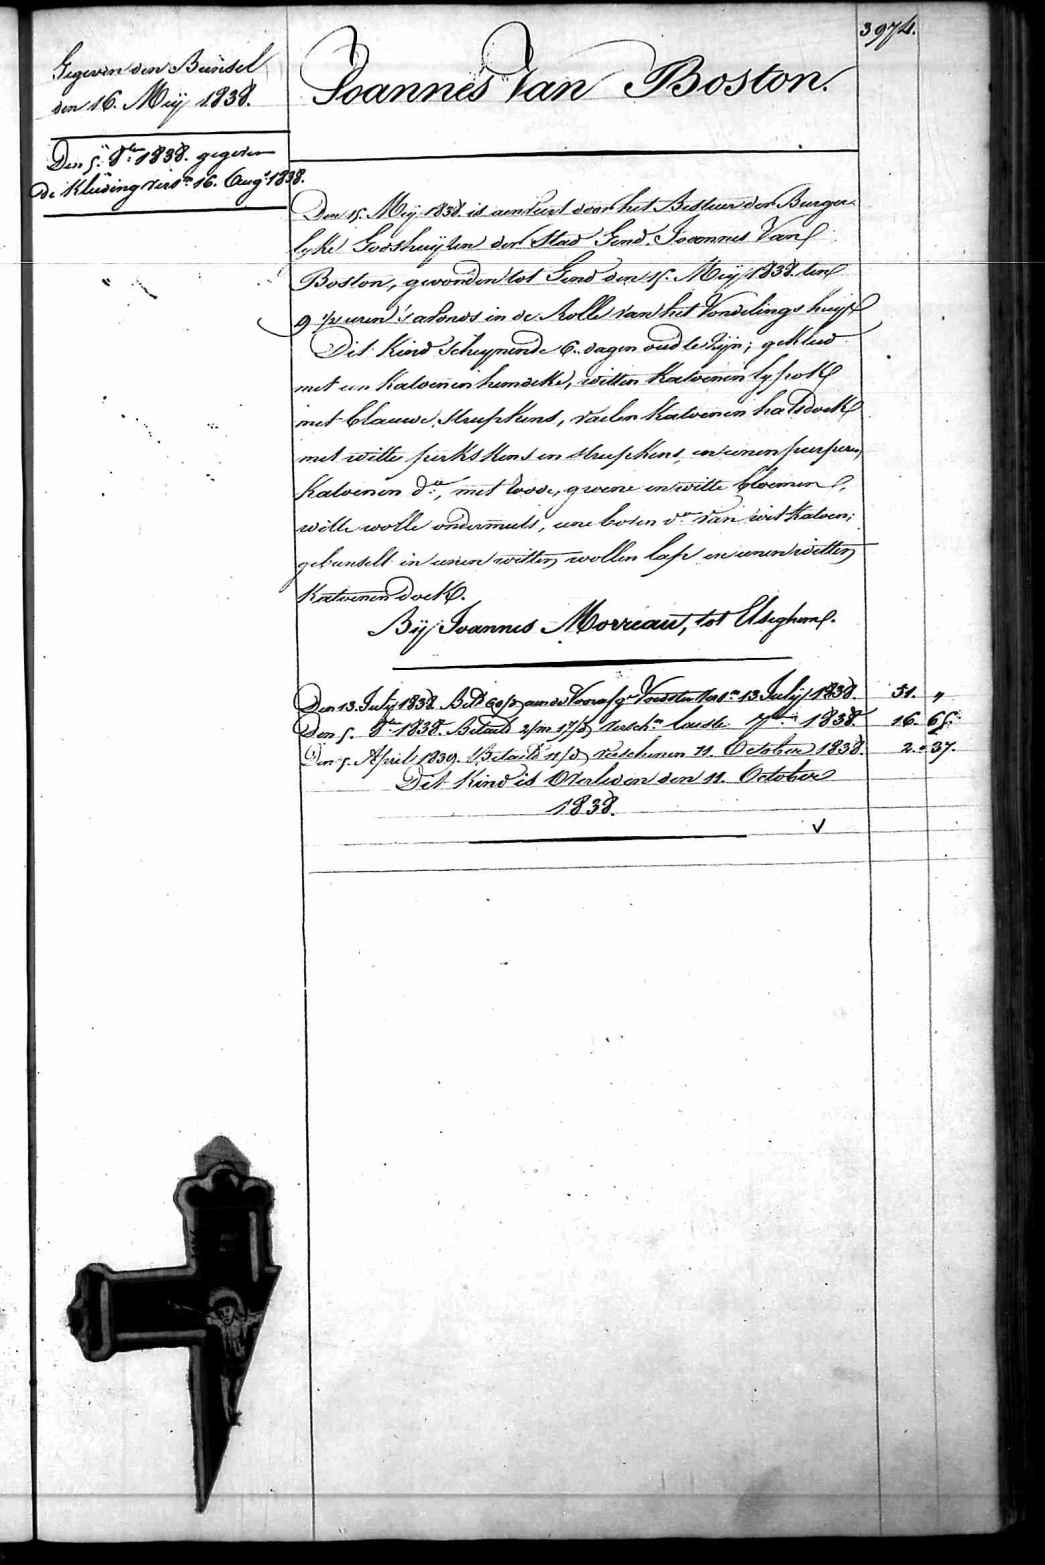 3974.
Gegeven den Bunsel
den 16. Meij 1838.
Den 5. 8bre 1838. gegeven
de Kleeding versn 16. Augt 1838.
Joannes Van Boston.
Den 15. Meij 1838. is aenveert door het Bestuer der Burger-
lyke Godshuijsen der Stad Gend. Joannes Van
Boston, gevonden tot Gend den 15. Meij 1838. ten
9 1/2 uren 's avonds in de Rolle van het Vondelings huijs
Dit Kind scheynende 6. dagen oud te zijn; gekleed
met een Katoenen hemdeke, witten Katoenen lyfrok
met blauwe streepkens, Katoenen halsdoek
met witte perkskens en streepkens, en eenen peirperen
Katoenen do, met roode, groene en witte bloemen,
witte wolle ondermuts, eene boven do van wit Katoen;
gebunselt in eenen witten wollen lap en eenen witten
Katoenen doek.
Bij Joannes Morreau, tot Elseghem.
Den 13. Julij 1838. Betd 60/d aen de Voedster versn 13 Julij 1838. 51. "
Den 5. 8bre 1838. Betaeld 2/m 17/d versch. laeste 7bre 1838. 16. 65.
Den 5. April 1839. Betaeld 11/d verschenen 11. October 1838. 2. 37.
Dit Kind is Overleden den 11. October
1838.